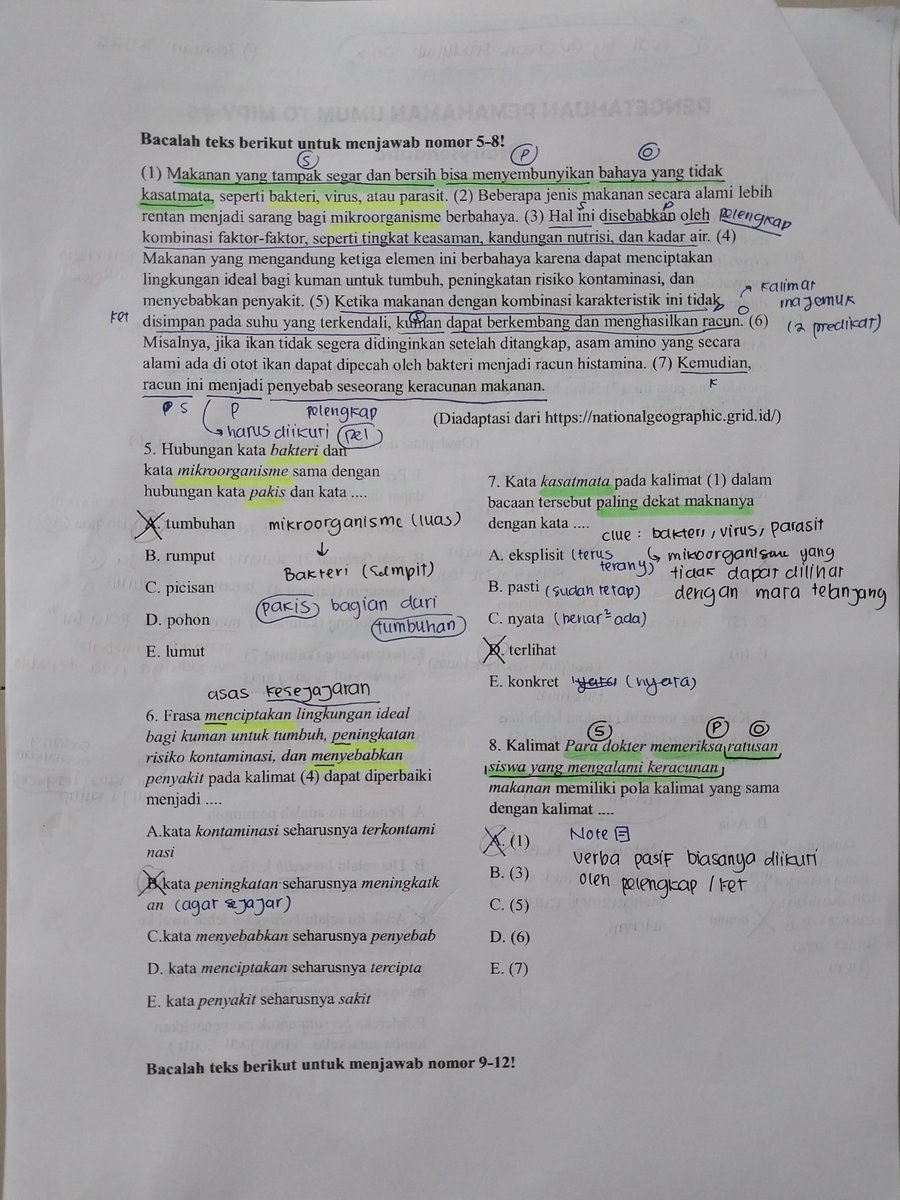 Bacalah teks berikut untuk menjawab nomor 5-8!
S P O
(1) Makanan yang tampak segar dan bersih bisa menyembunyikan bahaya yang tidak
kasatmata, seperti bakteri, virus, atau parasit. (2) Beberapa jenis makanan secara alami lebih
rentan menjadi sarang bagi mikroorganisme berbahaya. (3) Hal ini disebabkan oleh pelengkap
S P
kombinasi faktor-faktor, seperti tingkat keasaman, kandungan nutrisi, dan kadar air. (4)
Makanan yang mengandung ketiga elemen ini berbahaya karena dapat menciptakan
lingkungan ideal bagi kuman untuk tumbuh, peningkatan risiko kontaminasi, dan
menyebabkan penyakit. (5) Ketika makanan dengan kombinasi karakteristik ini tidak
kalimat majemuk
(2 predikat)
ket S O
disimpan pada suhu yang terkendali, kuman dapat berkembang dan menghasilkan racun. (6)
Misalnya, jika ikan tidak segera didinginkan setelah ditangkap, asam amino yang secara
alami ada di otot ikan dapat dipecah oleh bakteri menjadi racun histamina. (7) Kemudian,
K
racun ini menjadi penyebab seseorang keracunan makanan.
S P pelengkap
harus diikuti pel
(Diadaptasi dari https://nationalgeographic.grid.id/)
5. Hubungan kata bakteri dan
kata mikroorganisme sama dengan
hubungan kata pakis dan kata ....
A. tumbuhan
B. rumput
C. picisan
D. pohon
E. lumut
mikroorganisme (luas)
↓
Bakteri (sempit)
pakis bagian dari
tumbuhan
asas kesejajaran
6. Frasa menciptakan lingkungan ideal
bagi kuman untuk tumbuh, peningkatan
risiko kontaminasi, dan menyebabkan
penyakit pada kalimat (4) dapat diperbaiki
menjadi ....
A.kata kontaminasi seharusnya terkontami
nasi
B.kata peningkatan seharusnya meningkatk
an (agar sejajar)
C.kata menyebabkan seharusnya penyebab
D. kata menciptakan seharusnya tercipta
E. kata penyakit seharusnya sakit
7. Kata kasatmata pada kalimat (1) dalam
bacaan tersebut paling dekat maknanya
dengan kata ....
clue : bakteri, virus, parasit
↳ mikoorganisme yang
tidak dapat dilihat
dengan mata telanjang
A. eksplisit (terus terang)
B. pasti (sudah tetap)
C. nyata (benar² ada)
D. terlihat
E. konkret (nyata)
S P O
8. Kalimat Para dokter memeriksa ratusan
siswa yang mengalami keracunan
makanan memiliki pola kalimat yang sama
dengan kalimat ....
A. (1)
B. (3)
C. (5)
D. (6)
E. (7)
Note
verba pasif biasanya diikuti
oleh pelengkap / ket
Bacalah teks berikut untuk menjawab nomor 9-12!